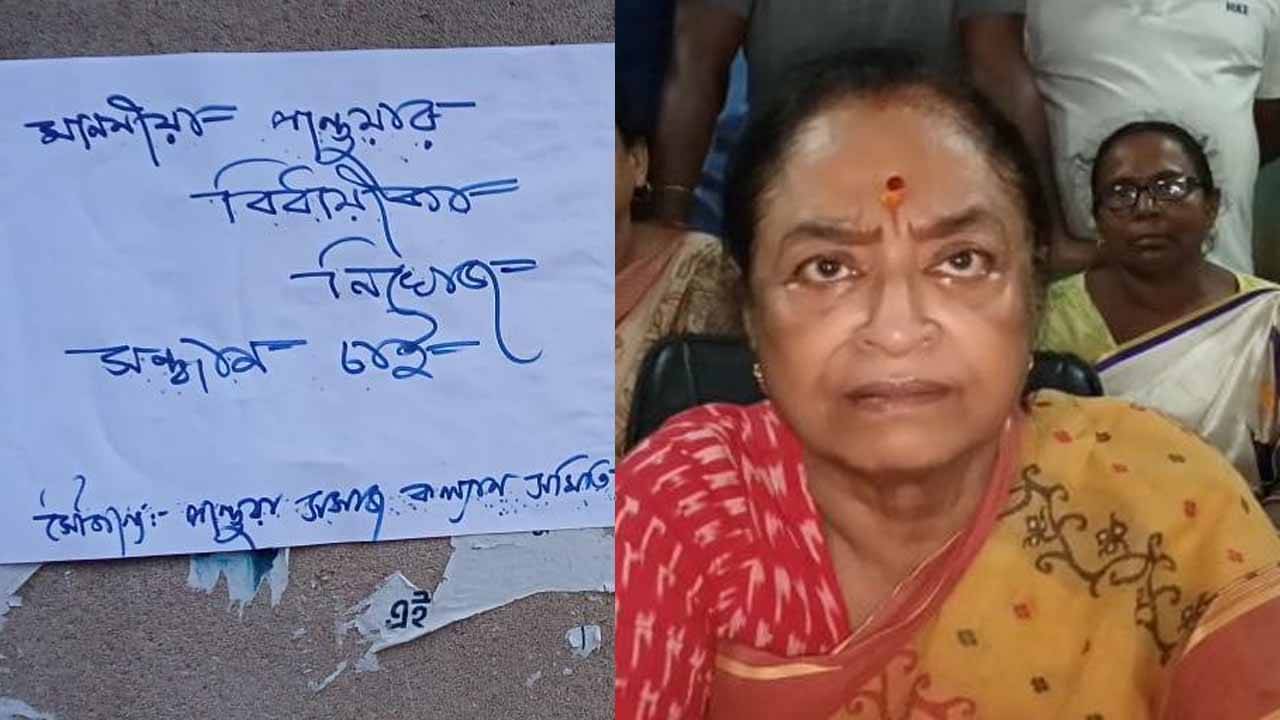 মাননীয়া পান্ডুয়ার
বিধায়ীকার
নিখোঁজ
সন্ধান চাই
সৌজন্যেঃ- পান্ডুয়া সমাজ কল্যাণ সমিতি
এই